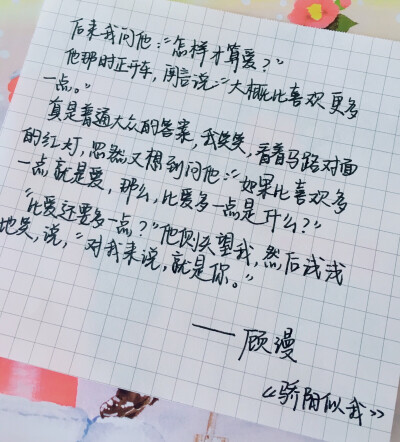 后来我问他：“怎样才算爱？”
他那时正开车，闻言说：“大概比喜欢更多
一点。”
真是普通大众的答案，我笑笑，看着马路对面
的红灯，忽然又想到问他：“如果比喜欢多
一点就是爱，那么，比爱多一点是什么？”
“比爱还要多一点？”他侧头望我，然后浅浅
地笑，说，“对我来说，就是你。”
——顾漫
《骄阳似我》